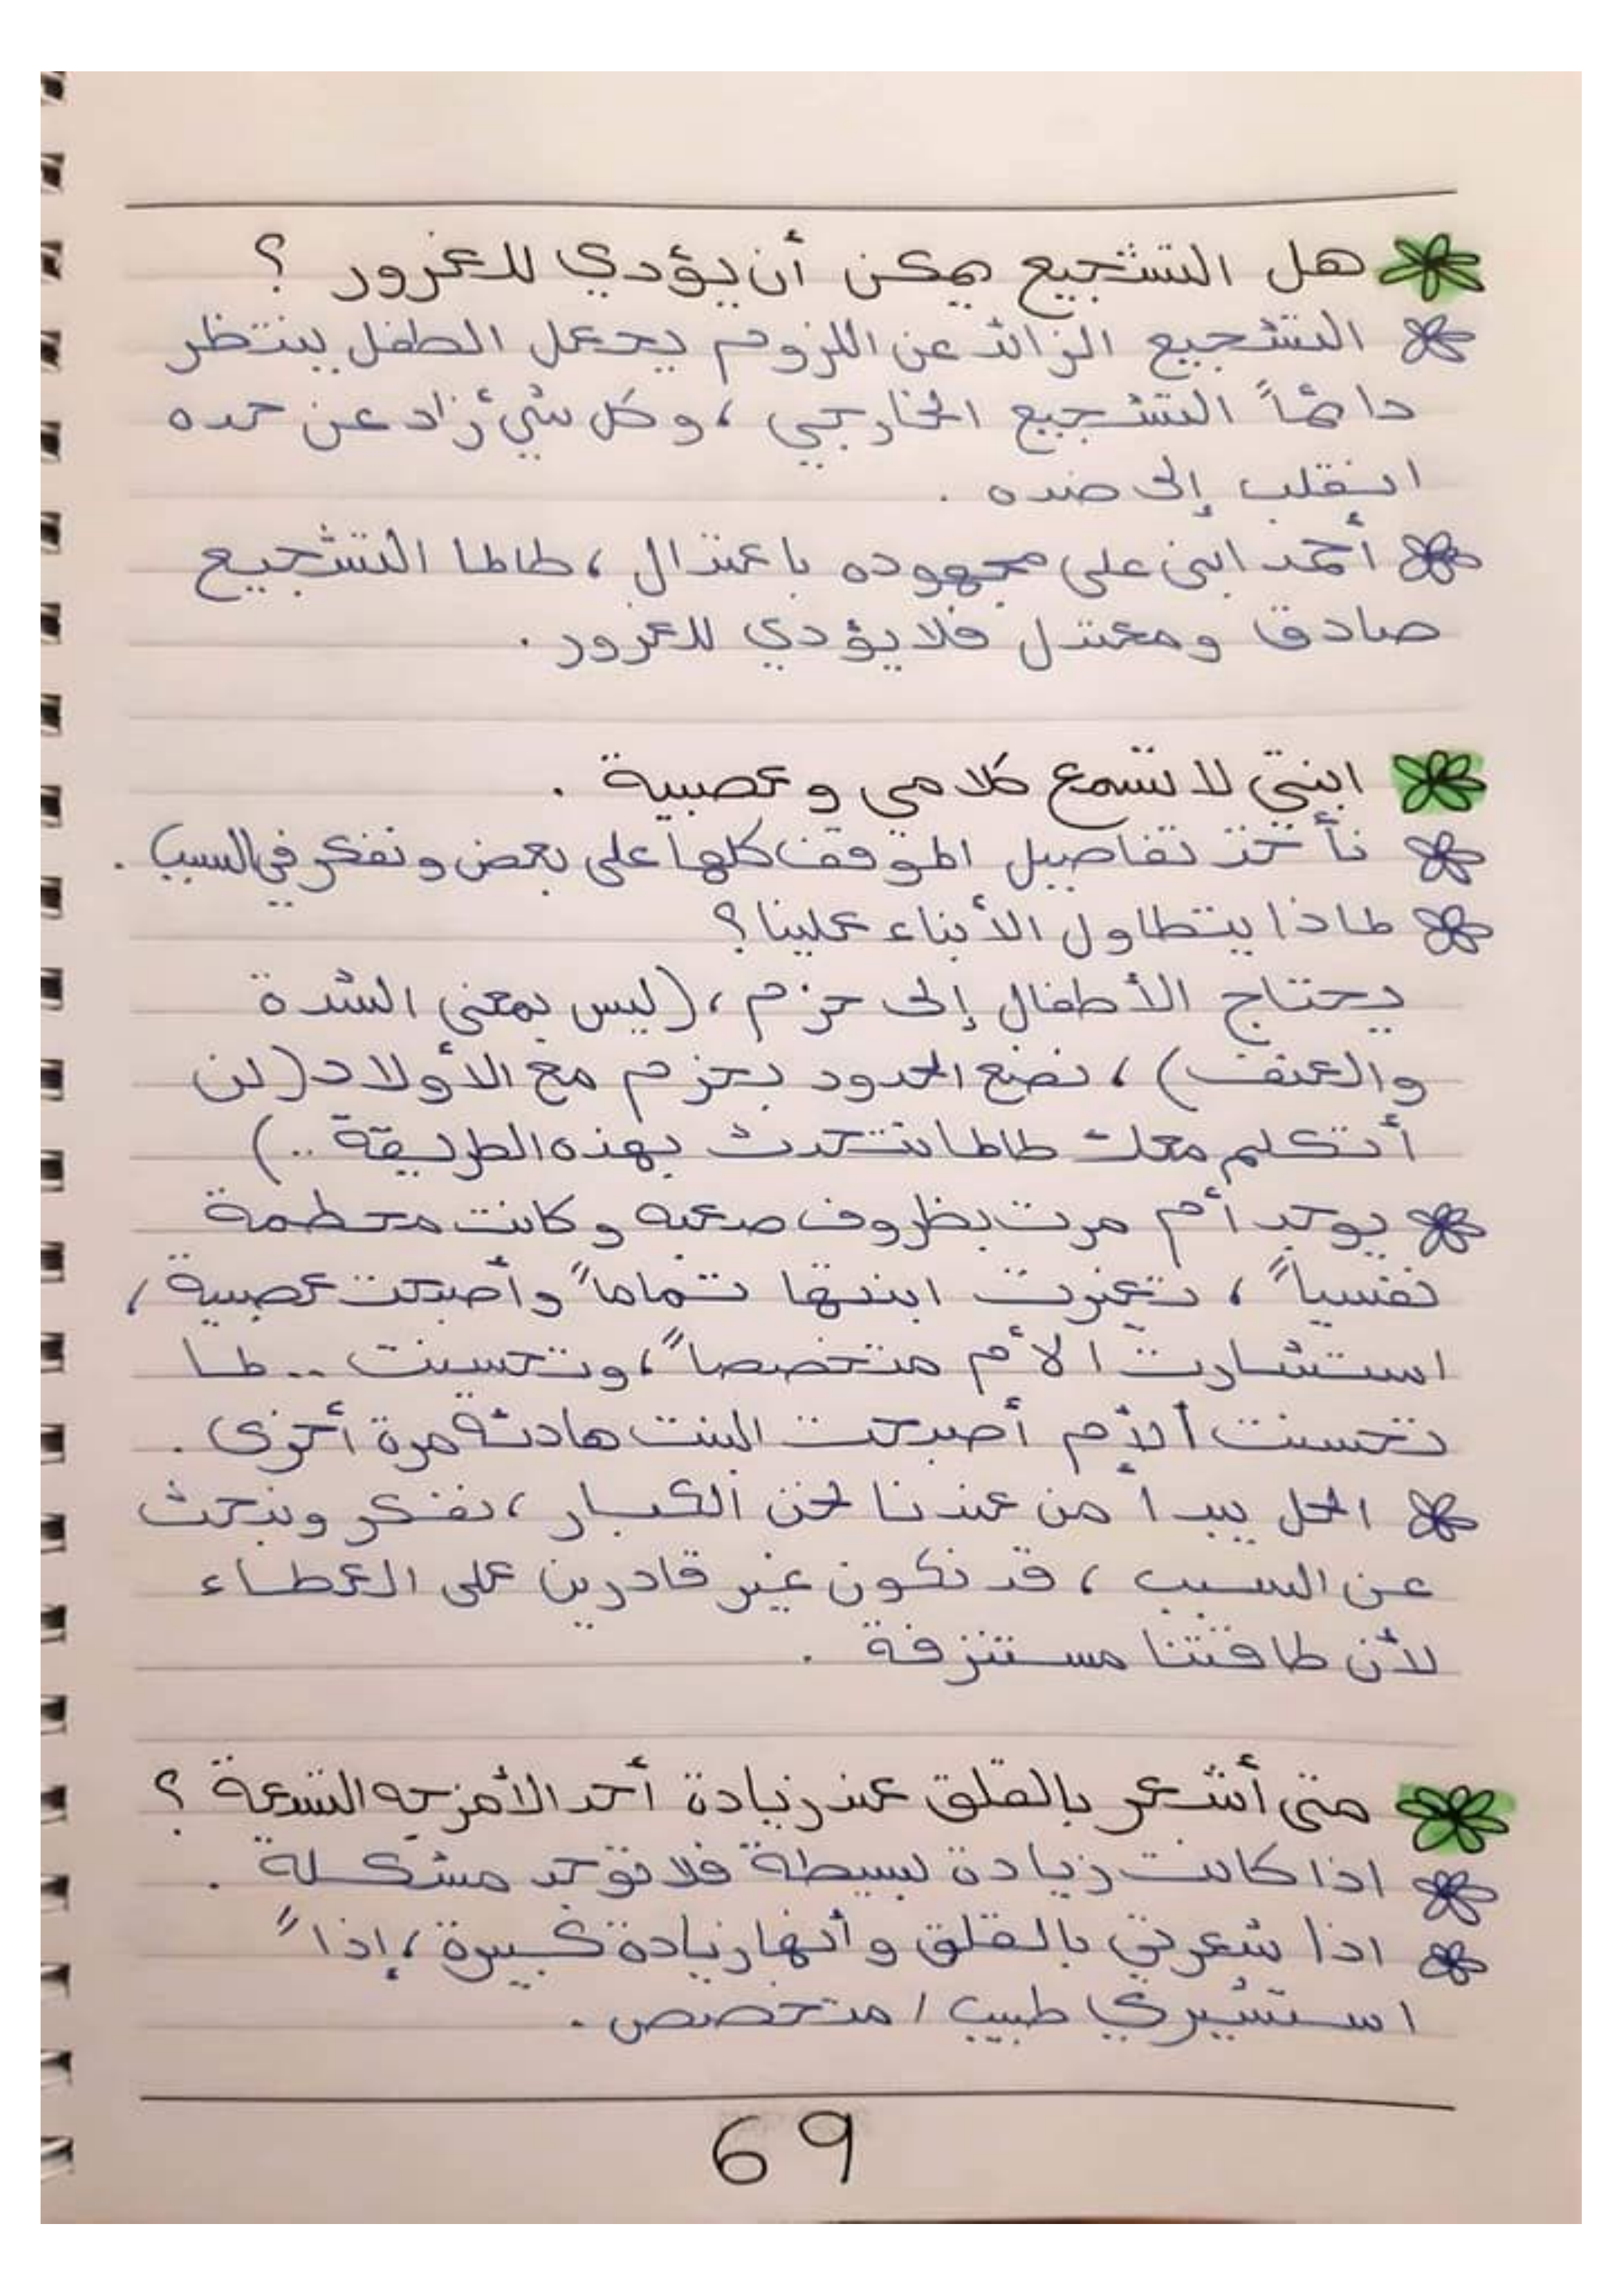 هل التشجيع يمكن أن يؤدي للغرور ؟
التشجيع الزائد عن اللزوم يجعل الطفل ينتظر
دائماً التشجيع الخارجي ، وكل شيء زاد عن حده
انقلب إلى ضده .
أحمد ابني على مجهوده باعتدال ، طالما التشجيع
صادق ومعتدل فلا يؤدي للغرور .
ابنتي لا تسمع كلامي وعصبية .
نأخذ تفاصيل الموقف كلها على بعض ونفكر في السبب .
لماذا يتطاول الأبناء علينا؟
يحتاج الأطفال إلى حزم ، (ليس بمعنى الشدة
والعنف) ، نضع الحدود بحزم مع الأولاد (لن
أتكلم معك طالما تتحدث بهذه الطريقة ..)
يوجد أم مرت بظروف صعبه وكانت محطمة
نفسياً ، تغيرت ابنتها تماماً وأصبحت عصبية ،
استشارت الأم متخصصاً ، وتحسنت .. لما
تحسنت الأم أصبحت البنت هادئة مرة أخرى .
الحل يبدأ من عندنا نحن الكبار ، نفكر ونبحث
عن السبب ، قد نكون غير قادرين على العطاء
لأن طاقتنا مستنزفة .
متى أشعر بالقلق عند زيادة أحد الأمزجه التسعة ؟
اذا كانت زيادة بسيطة فلا توجد مشكلة .
اذا شعرتي بالقلق وأنها زيادة كبيرة ، إذاً
استشيري طبيب / متخصص .
69